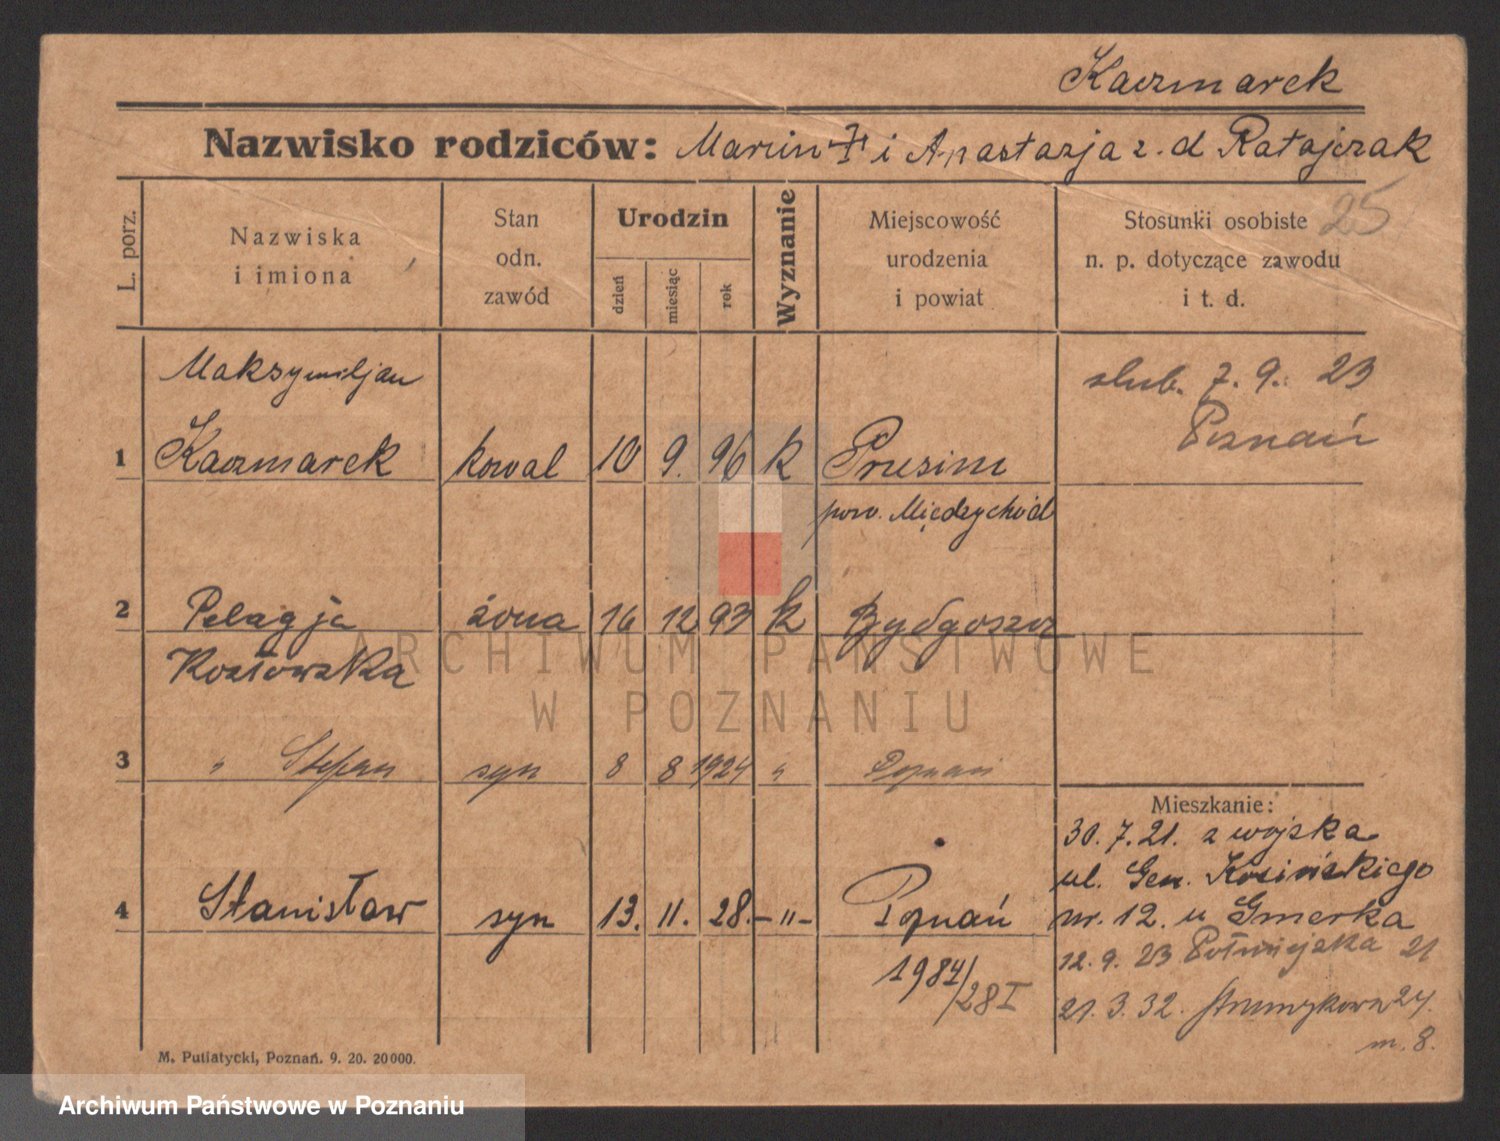 Kaczmarek
Nazwisko rodziców: Marcin i Anastazja z. d Ratajczak
25
L. porz.
Nazwiska
i imiona
Stan
odn.
zawód
Urodzin
dzień
miesiąc
rok
Wyznanie
Miejscowość
urodzenia
i powiat
Stosunki osobiste
n. p. dotyczące zawodu
i t. d.
Maksymiljan
ślub. 7. 9. 23
Poznań
1 Kaczmarek kowal 10 9. 96 k Prusim
pow. Międzychód
2 Pelagja żona 16 12 93 k Bydgoszcz
Kozłowska
3 " Stefan syn 8 8 1924 " Poznań
Mieszkanie:
30. 7. 21. z wojska
ul. Gen. Kosińskiego
4 Stanisław syn 13. 11. 28. -"- Poznań
nr. 12. u Gmerka
12. 9. 23 21
1984/28 I
21. 3. 32. Strumykowa 24.
m. 8.
M. Putiatycki, Poznań. 9. 20. 20000.
ARCHIWUM PAŃSTWOWE
W POZNANIU
Archiwum Państwowe w Poznaniu